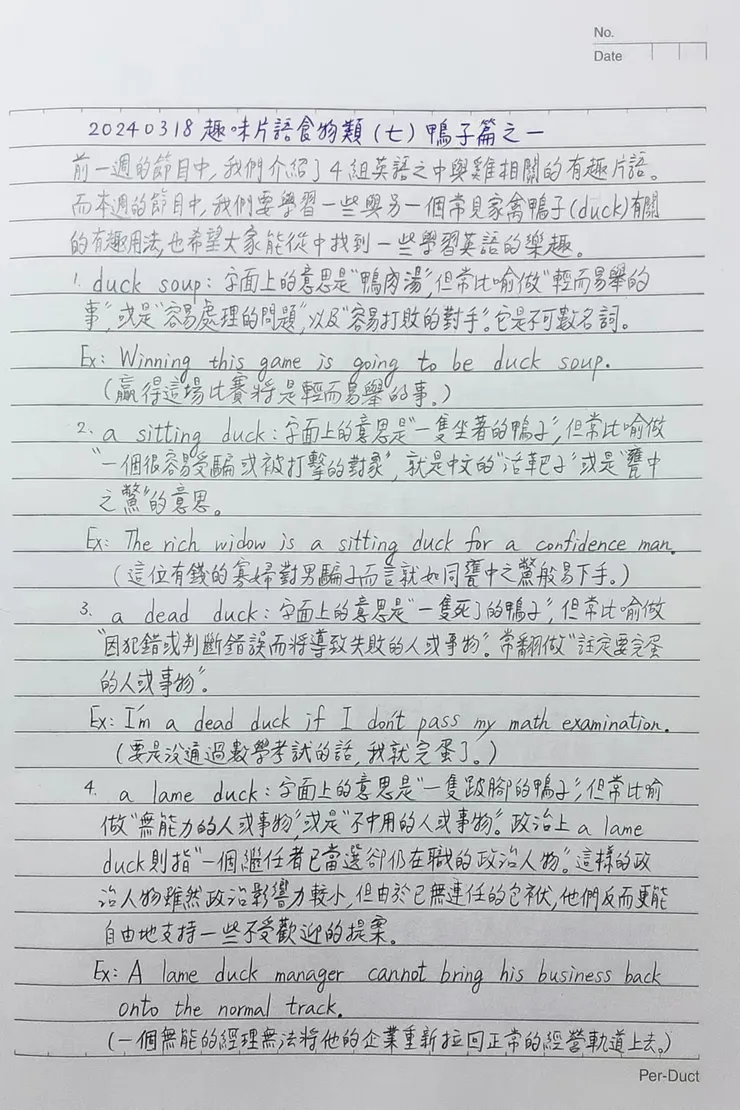 No.
Date
20240318 趣味片語食物類(七)鴨子篇之一
前一週的節目中,我們介紹了4組英語之中與雞相關的有趣片語。
而本週的節目中,我們要學習一些與另一個常見家禽鴨子(duck)有關
的有趣用法,也希望大家能從中找到一些學習英語的樂趣。
1. duck soup:字面上的意思是"鴨肉湯",但常比喻做"輕而易舉的
事",或是"容易處理的問題",以及"容易打敗的對手"。它是不可數名詞。
Ex: Winning this game is going to be duck soup.
(贏得這場比賽將是輕而易舉的事。)
2. a sitting duck:字面上的意思是"一隻坐著的鴨子",但常比喻做
"一個很容易受騙或被打擊的對象",就是中文的"活靶子"或是"甕中
之鱉"的意思。
Ex: The rich widow is a sitting duck for a confidence man.
(這位有錢的寡婦對男騙子而言就如同甕中之鱉般易下手。)
3. a dead duck:字面上的意思是"一隻死了的鴨子",但常比喻做
"因犯錯或判斷錯誤而將導致失敗的人或事物"。常翻做"註定要完蛋
的人或事物"。
Ex: I'm a dead duck if I don't pass my math examination.
(要是沒通過數學考試的話,我就完蛋了。)
4. a lame duck:字面上的意思是"一隻跛腳的鴨子",但常比喻
做"無能力的人或事物",或是"不中用的人或事物"。政治上a lame
duck則指"一個繼任者已當選卻仍在職的政治人物"。這樣的政
治人物雖然政治影響力較小,但由於已無連任的包袱,他們反而更能
自由地支持一些不受歡迎的提案。
Ex: A lame duck manager cannot bring his business back
onto the normal track.
(一個無能的經理無法將他的企業重新拉回正常的經營軌道上去。)
Per-Duct